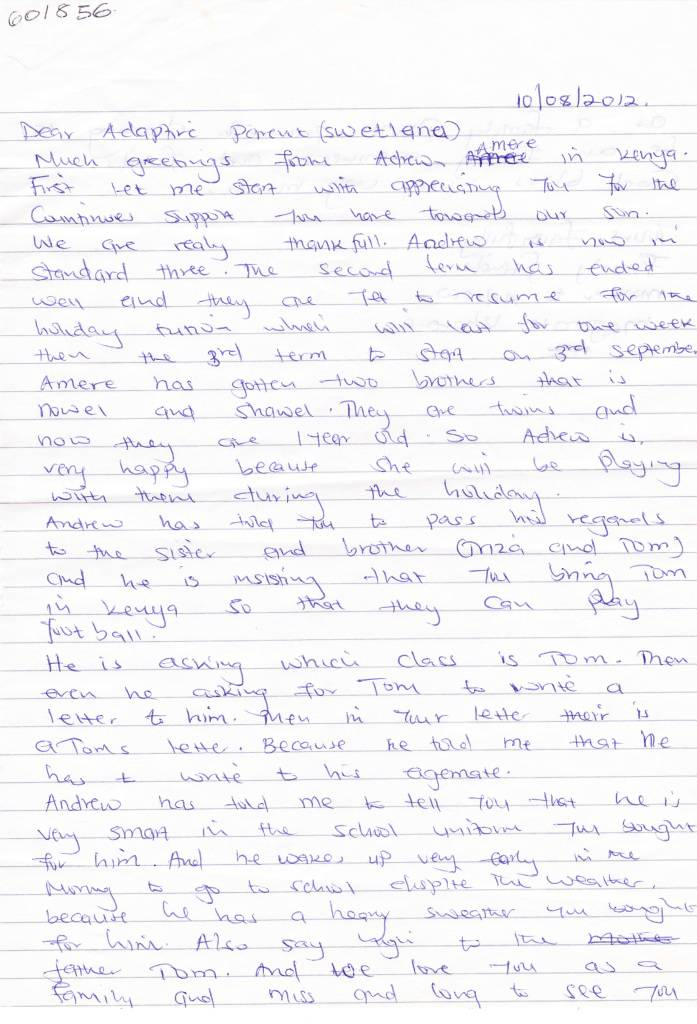 601856
10/08/2012.
Dear Adaptive Parent (Swetlana)
Much greetings from Adrew Amere in Kenya.
First let me start with appreciating you for the
Continues support you have towards our son.
We are realy thankfull. Andrew is now in
standard three. The second term has ended
well and they are yet to resume for the
holiday tution which will last for one week
then the 3rd term to start on 3rd September
Amere has gotten two brothers that is
Nowel and Shawel. They are twins and
now they are 1 year old. So Adrew is,
very happy because she will be playing
with them during the holiday.
Andrew has told you to pass his regards
to the sister and brother ( and Tom)
and he is insisting that you bring Tom
in Kenya so that they can play
foot ball.
He is asking which class is Tom. Then
even he asking for Tom to write a
letter to him. Then in your letter their is
a Toms letter. Because he told me that he
has t write to his agemate.
Andrew has told me to tell you that he is
very smart in the school uniform you bought
for him. And he wakes up very early in the
Morning to go to school dispite the weather,
because he has a heavy sweather you bought
for him. Also say to the
father Tom. And we love you as a
family and miss and long to see you